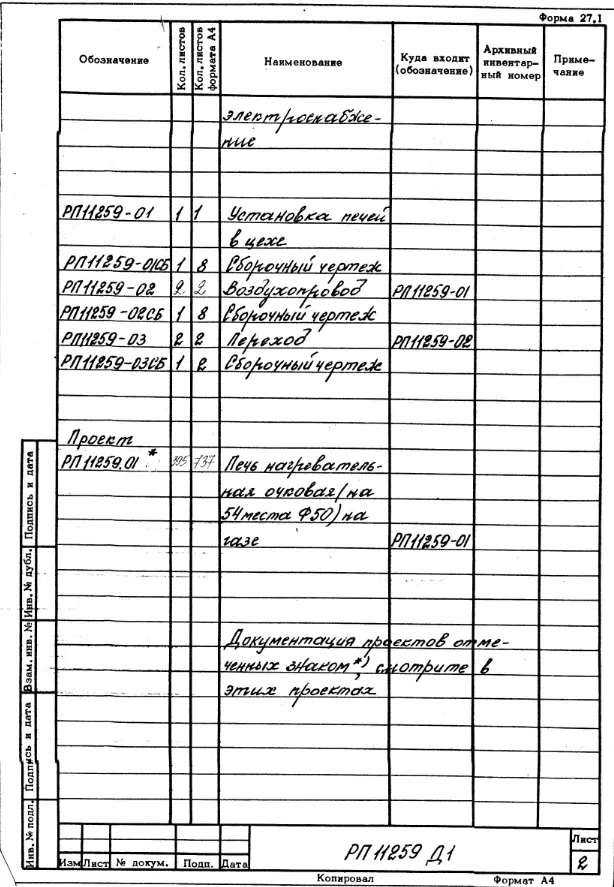 Форма 27.1
Обозначение Кол. листов Кол. листов формата А4 Наименование Куда входит (обозначение) Архивный инвентарный номер Примечание
электроснабже-
ние
РП11259-01 1 1 Установка печей
в цехе
РП11259-01СБ 1 8 Сборочный чертеж
РП11259-02 2 2 Воздухопровод РП11259-01
РП11259-02СБ 1 8 Сборочный чертеж
РП11259-03 2 2 Переход РП11259-02
РП11259-03СБ 1 2 Сборочный чертеж
Проект
РП11259.01 * 395 737 Печь нагреватель-
ная очковая (на
54 места Ф50) на
газе РП11259-01
Документация проектов отме-
ченных знаком *) смотрите в
этих проектах
Инв. № подл. Подпись и дата Взам. инв. № Инв. № дубл. Подпись и дата
Изм Лист № докум. Подп. Дата
РП 11259 Д1
Лист
2
Копировал Формат А4